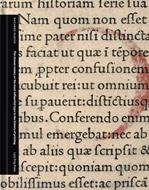 arum historiam serie sua
Nam quom non esset
ime pater nisi distincta
is faciat ut quæ í tépore
em ꝓpter confusionem
cubuit rei: ut omnium
e su pauerit: distíctiusq
ibus. Conferendo enim
mul emergebat: nec ab
ab aliis quæ scripsit &
scepit: quoniam quom
obilissimus esset: ac prisca